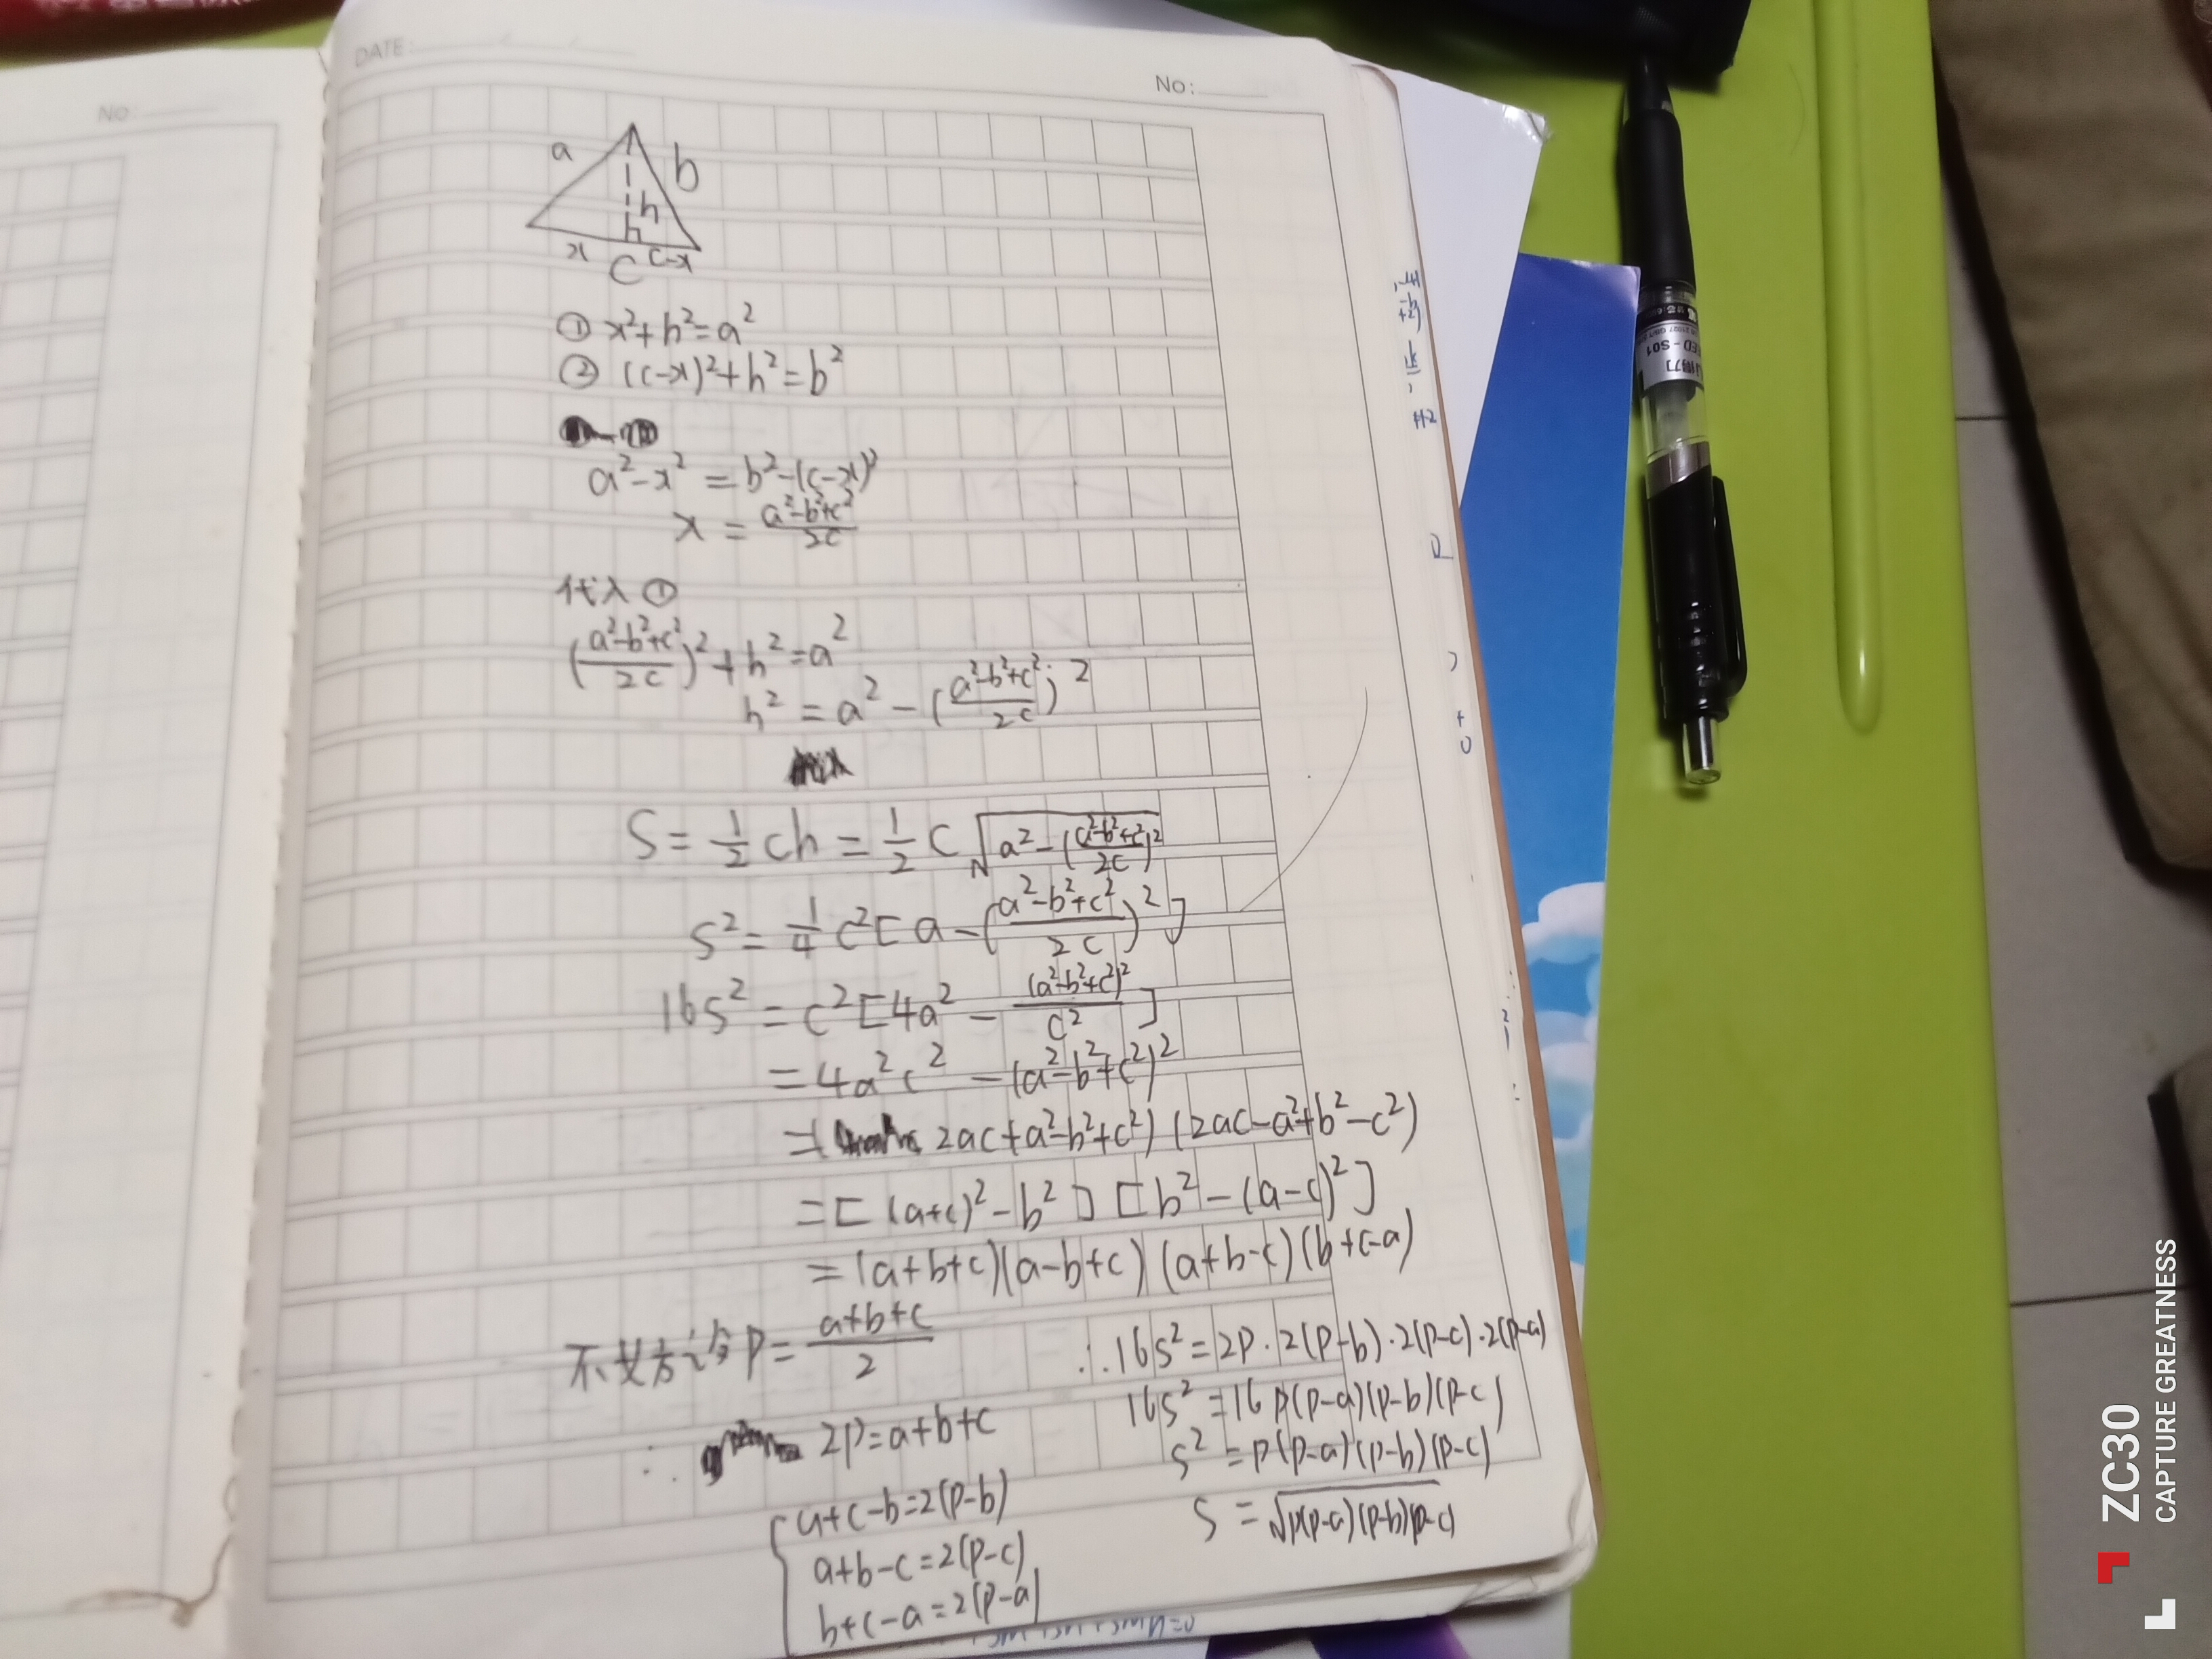 DATE:
No:
No:
a
b
h
x
c
c-x
① x²+h²=a²
② (c-x)²+h²=b²
a²-x² = b²-(c-x)²
x = \frac{a²-b²+c²}{2c}
代入①
(\frac{a²-b²+c²}{2c})²+h²=a²
h² = a²-(\frac{a²-b²+c²}{2c})²
S = \frac{1}{2}ch = \frac{1}{2}c\sqrt{a²-(\frac{a²-b²+c²}{2c})²}
S² = \frac{1}{4}c²[a-(\frac{a²-b²+c²}{2c})²]
16S² = c²[4a²-\frac{(a²-b²+c²)²}{c²}]
= 4a²c²-(a²-b²+c²)²
=(2ac+a²-b²+c²)(2ac-a²+b²-c²)
=[(a+c)²-b²][b²-(a-c)²]
=(a+b+c)(a-b+c)(a+b-c)(b+c-a)
不妨令P=\frac{a+b+c}{2}
∴ 2P=a+b+c
a+c-b=2(P-b)
a+b-c=2(P-c)
b+c-a=2(P-a)
∴16S²=2P·2(P-b)·2(P-c)·2(P-a)
16S²=16P(P-a)(P-b)(P-c)
S²=P(P-a)(P-b)(P-c)
S=\sqrt{P(P-a)(P-b)(P-c)}
ZC30
CAPTURE GREATNESS